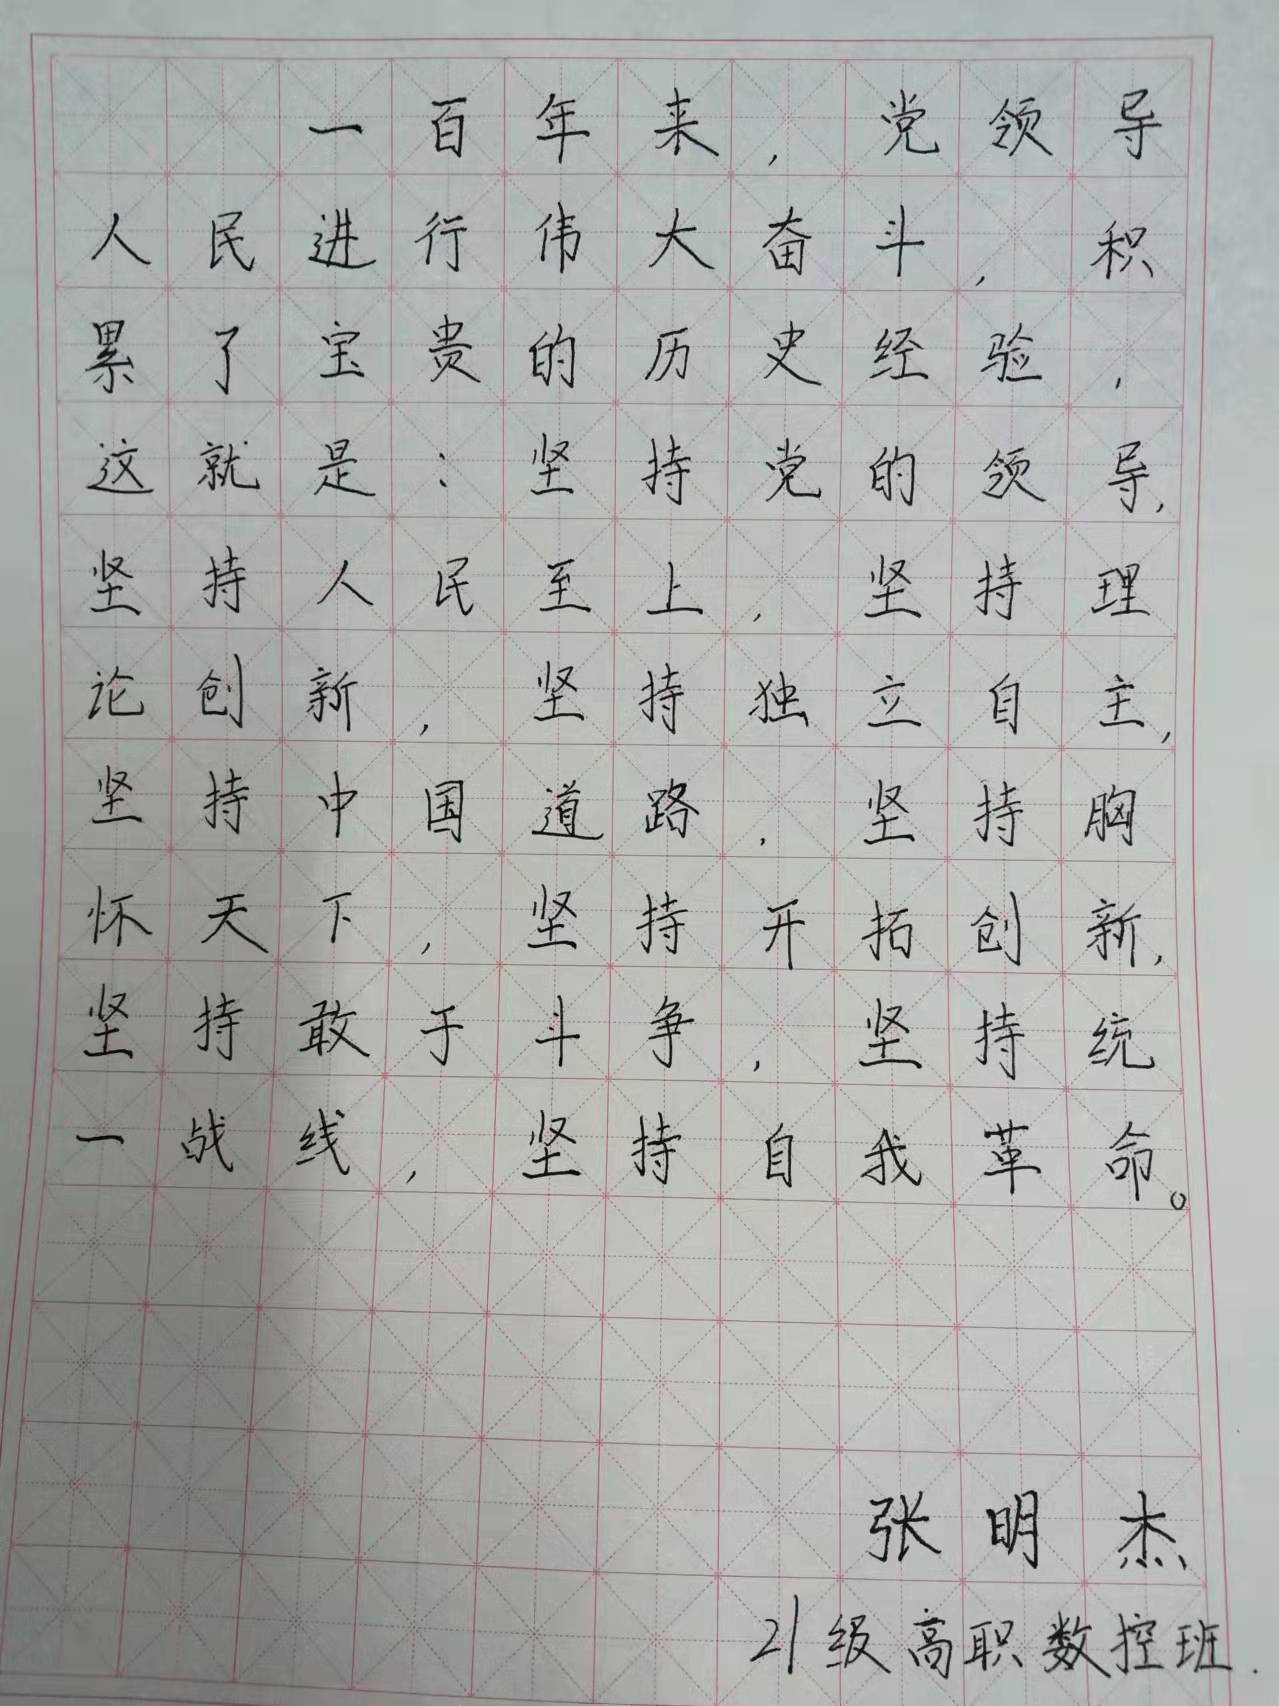 一百年来，党领导
人民进行伟大奋斗，积
累了宝贵的历史经验，
这就是：坚持党的领导，
坚持人民至上，坚持理
论创新，坚持独立自主，
坚持中国道路，坚持胸
怀天下，坚持开拓创新，
坚持敢于斗争，坚持统
一战线，坚持自我革命。
张明杰
21级高职数控班.